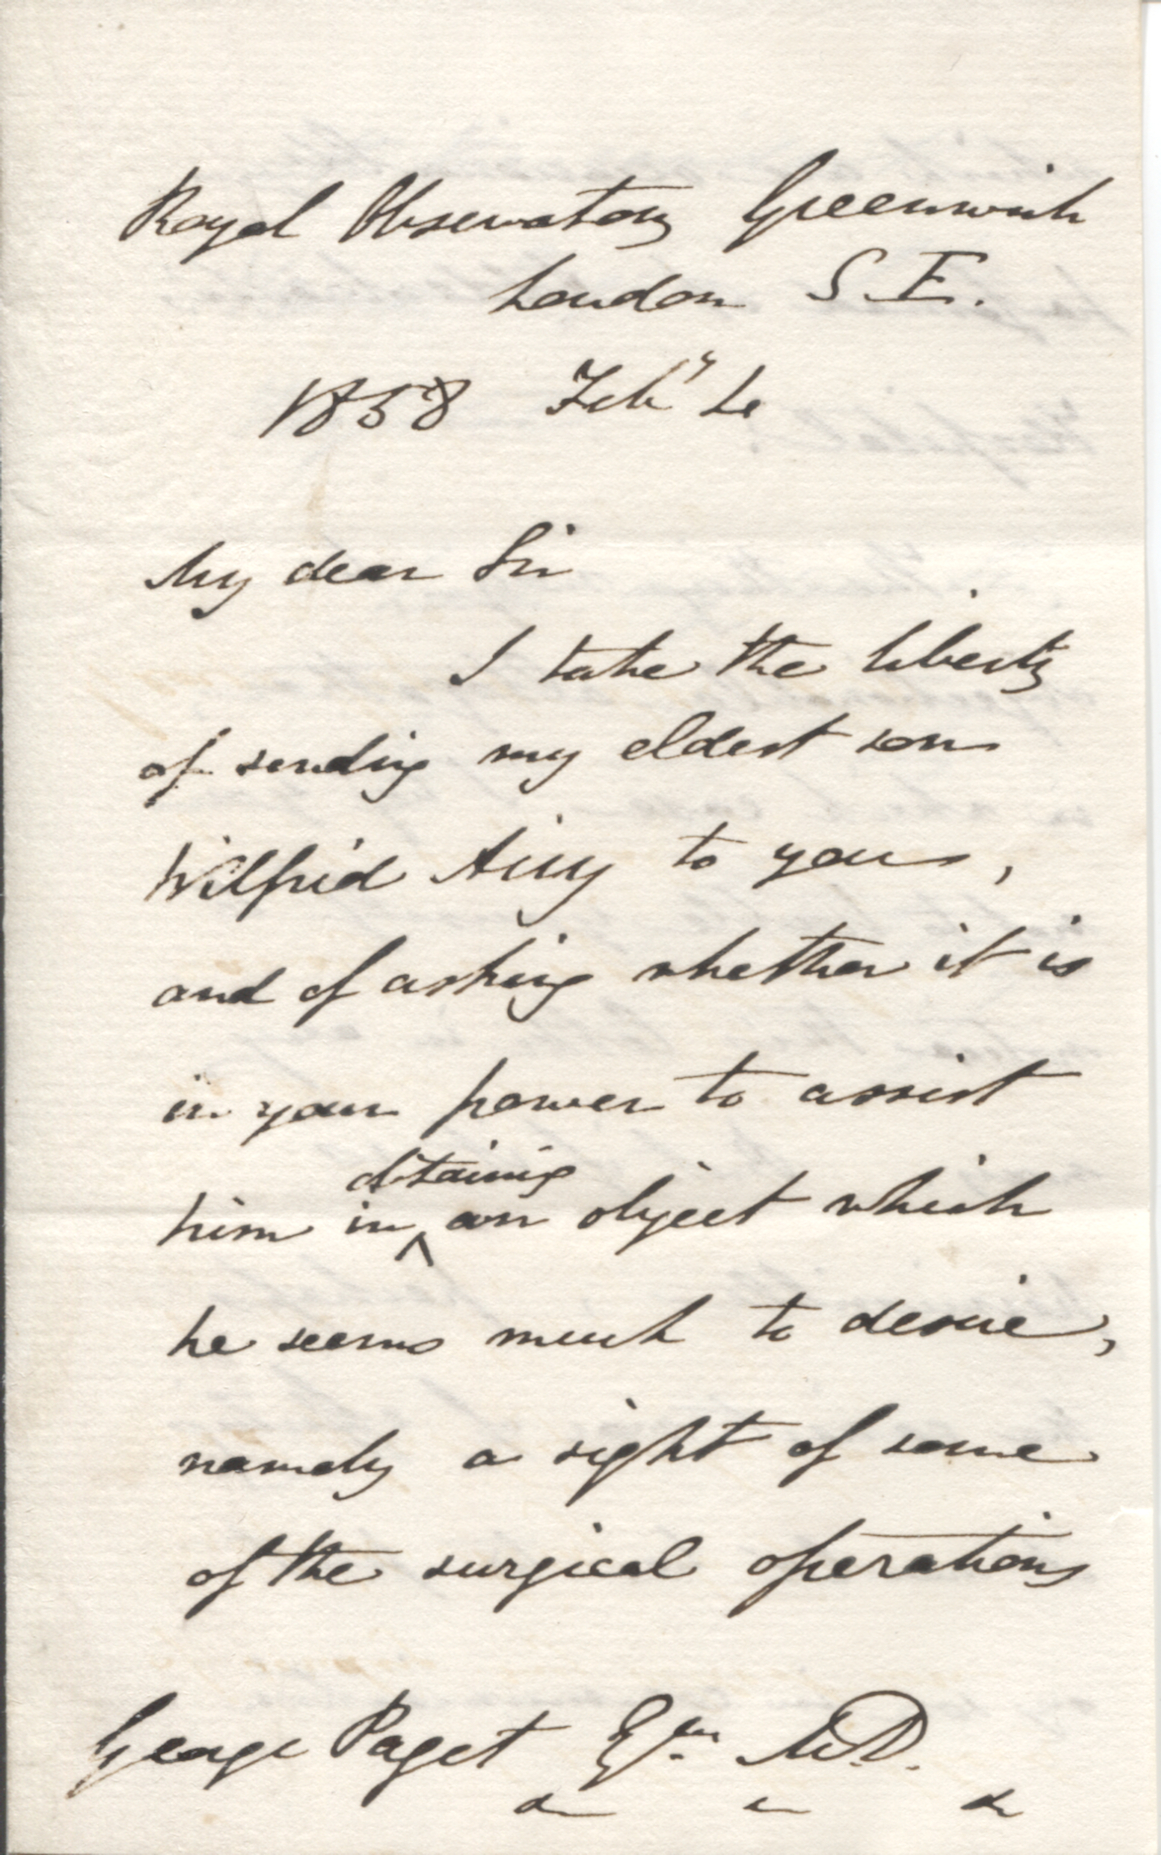 Royal Observatory Greenwich
London S.E.
1858 Feby
My dear Sir
I take the liberty
of sending my eldest son
Wilfrid Airy to you,
and of asking whether it is
in your power to assist
him in obtaining an object which
he seems much to desire,
namely a sight of some
of the surgical operations
George Paget Esqre M.D.
&c &c &c